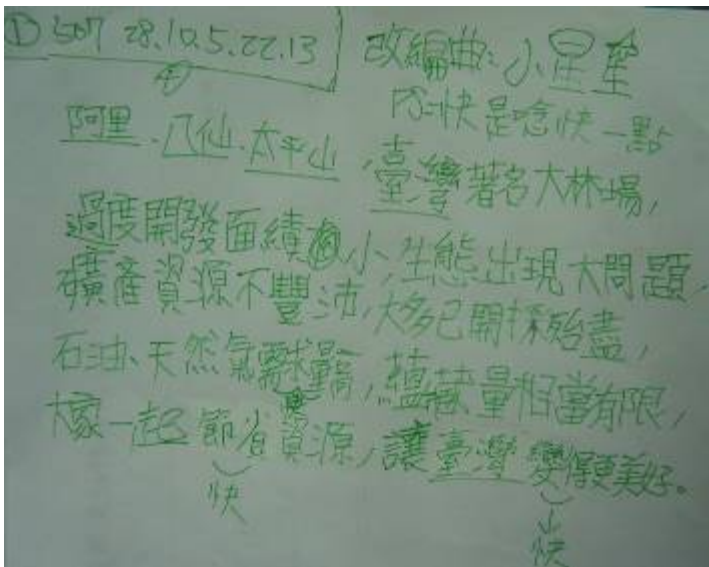 ① 507 28.10.5.22.13 改編曲:小星星
快是唸快一點
阿里、八仙、太平山,臺灣著名大林場,
過度開發面績縮小,生態出現大問題,
礦產資源不豐沛,大多已開採殆盡,
石油、天然氣需求量高,蘊藏量相當有限,
大家一起節省資源,讓臺灣變得更美好。
快
快